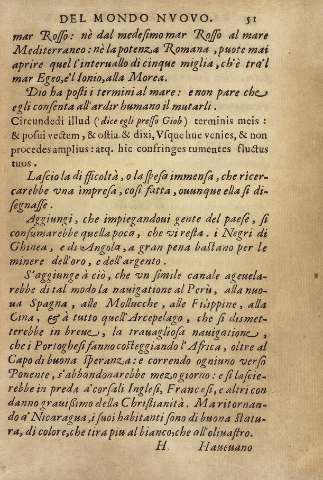 DEL MONDO NVOVO. 51
mar Rosso: nè dal medesimo mar Rosso al mare
Mediterraneo: nè la potenza Romana, puote mai
aprire quel l'interuallo di cinque miglia, ch'è tra'l
mar Egeo, e'l Ionio, alla Morea.
Dio ha posti i termini al mare: e non pare che
egli consenta all'ardir humano il mutarli.
Circundedi illud (dice egli presso Giob) terminis meis:
& posui vectem, & ostia & dixi, Vsque huc venies, & non
procedes amplius: atq. hic confringes tumentes fluctus
tuos.
Lascio la difficoltà, o la spesa immensa, che ricer-
carebbe vna impresa, così fatta, ouunque ella si di-
segnasse.
Aggiungi, che impiegandoui gente del paese, si
consumarebbe quella poca, che vi resta. i Negri di
Ghinea, e di Angola, a gran pena bastano per le
minere dell'oro, e dell'argento.
S'aggiunge à ciò, che vn simile canale ageuela-
rebbe di tal modo la nauigatione al Perù, alla nuo-
ua Spagna, alle Molucche, alle Filippine, alla
Cina, & à tutto quell'Arcepelago, che si dismet-
terebbe in breue, la trauagliosa nauigatione,
che i Portoghesi fanno costeggiando l'Africa, oltre al
Capo di buona Speranza: e correndo ogniuno verso
Ponente, s'abbandonarebbe mezogiorno: e si lascie-
rebbe in preda a' corsali Inglesi, Francesi, e altri con
danno grauissimo della Christianità. Ma ritornan-
do a' Nicaragua, i suoi habitanti sono di buona statu-
ra, di colore, che tira piu al bianco, che all'oliuastro.
H Haueuano